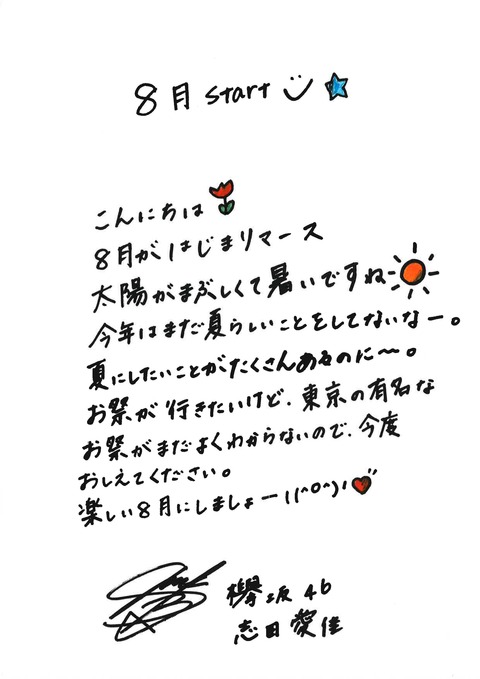 8月start
こんにちは
8月がはじまりマース
太陽がまぶしくて暑いですね
今年はまだ夏らしいことをしてないなー。
夏にしたいことがたくさんあるのに〜。
お祭が行きたいけど、東京の有名な
お祭がまだよくわからないので、今度
おしえてください。
楽しい8月にしましょー!(^o^)!
欅坂46
志田愛佳